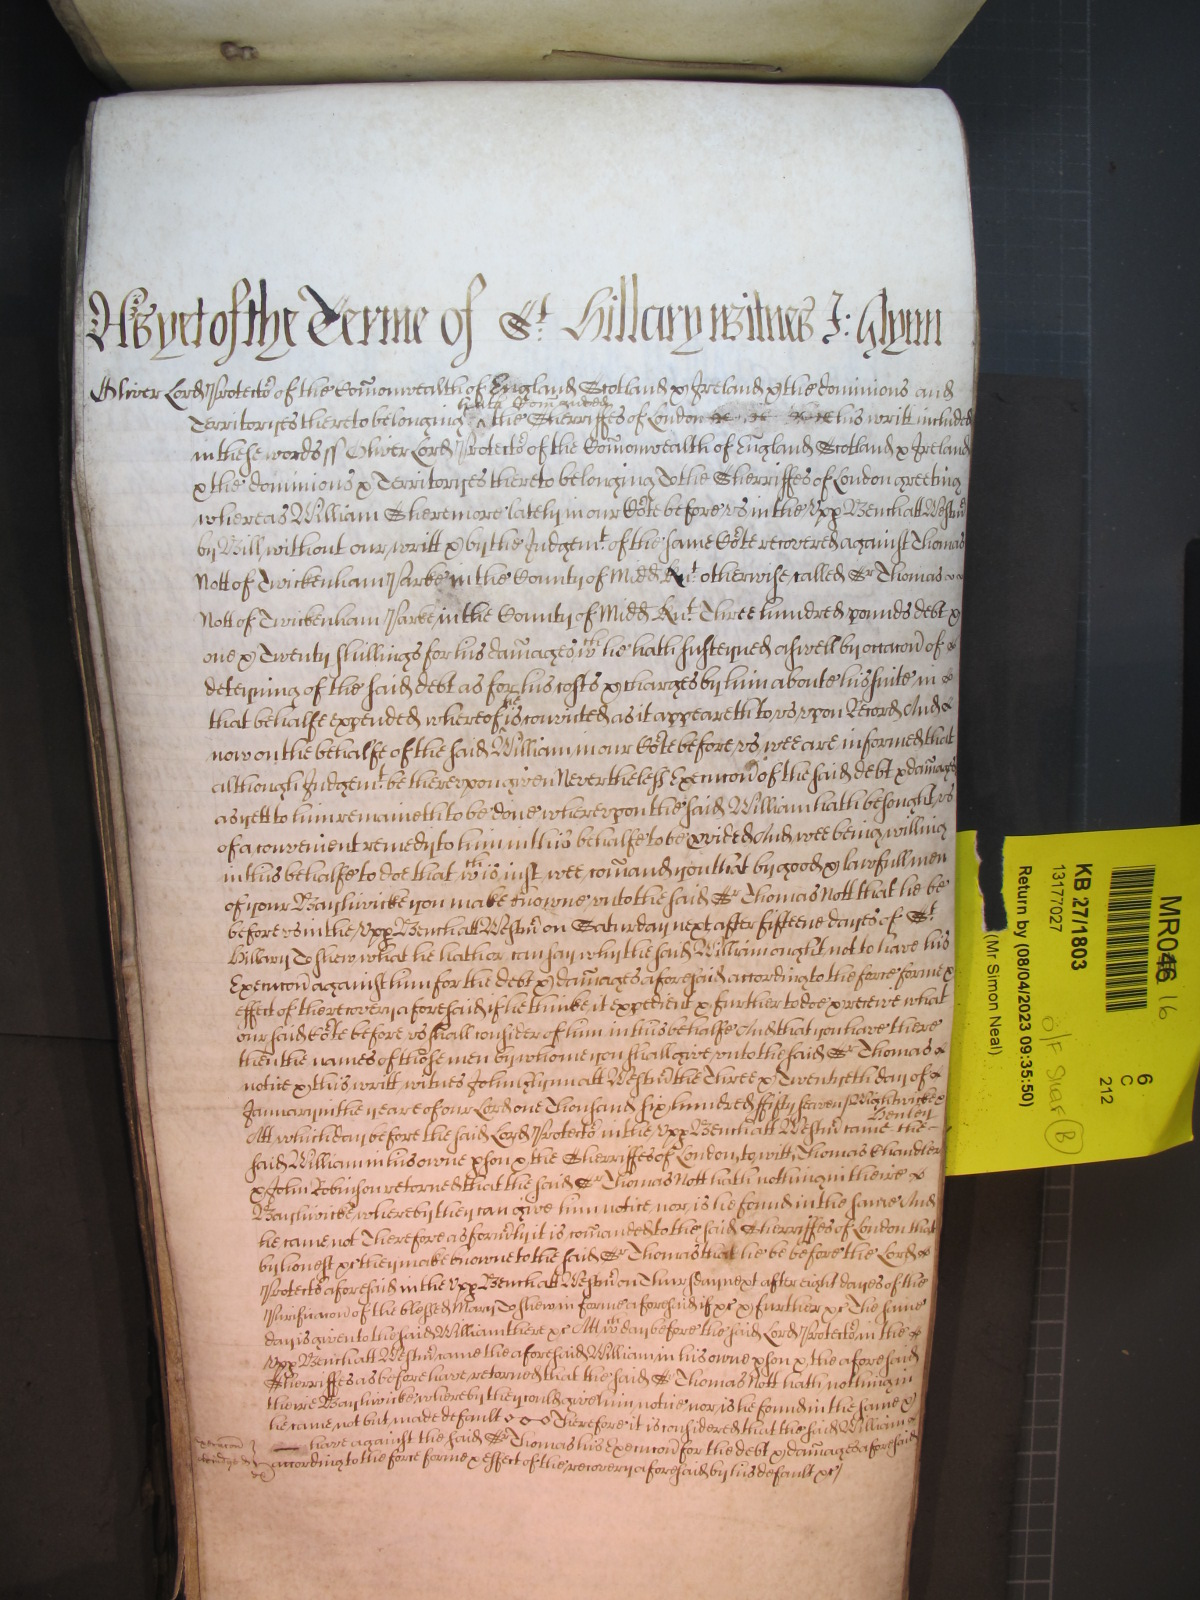 As yet of the Terme of St Hillary witnes J: Glynn
Oliver Lord Protector of the Comonwealth of England Scotland & Ireland & the dominions and
hath Comanded
Territoryes thereto belonging ^ the Sherriffes of London his writt included
in these words ss Oliver Lord Protector of the Comonwealth of England Scotland & Ireland
& the dominions & Territoryes thereto belonging To the Sherriffes of London greeting
whereas William Sheremore lately in our Cote before us in the Upp Bench att Westmr
by Bill without our writt & by the Judgemt. of the same Cote recovered against Thomas
Nott of Twickenham Parke in the County of Midd Knt. otherwise called Sr Thomas
Nott of Twickenham Parke in the County of Midd Knt. Three hundred pounds debt &
one & Twenty shillings for his damages wch he hath susteyned aswell by occacon of
deteyning of the said debt as for his costs & charges by him aboute his suite in
that behalfe expended whereof he is convicted as it appeareth to us upon Record And
now on the behalfe of the said William in our Cote before us wee are informed that
although Judgemt. be thereupon given Neverthelesse Execucon of the said debt & damages
as yett to him remaineth to be done whereupon the said William hath besought us
of a convenient remedy to him in this behalfe to be pvided And wee being willing
in this behalfe to doe that wch is just wee comand you that by good & lawfull men
of your Bayliwicke you make knowne unto the said Sr Thomas Nott that he be
before us in the Upp Bench att Westmr on Saturday next after fifteene dayes of St.
Hillary To shew what he hath or can say why the said William ought not to have his
Execucon against him for the debt & damages aforesaid according to the force forme &
effect of the recovery aforesaid if he thinke it expedient & further to doe & receive what
our said Cote before us shall consider of him in this behalfe And that you have there
then the names of those men by whome you shall give unto the said Sr Thomas
notice & this writt witnes John Glynn att Westmr the Three & Twentyeth day of
January in the yeare of our Lord one Thousand six hundred fifty seaven Wightwicke &
Henley
Att which day before the said Lord Protector in the Upp Bench att Westmr came the
said William in his owne pson & the Sherriffes of London to witt Thomas Chandler
& John Robinson retorned that the said Sr Thomas Nott hath nothing in theire
Bayliwicke whereby they can give him notice nor is he found in the same And
he came not Therefore as formly it is comanded to the said Sherriffes of London that
by honest &c they make knowne to the said Sr Thomas that he be before the Lord
Protector aforesaid in the Upp Bench att Westmr on Thursday next after eight dayes of the
Purificacon of the blessed Mary To shew in forme aforesaid if &c & further &c The same
day is given to the said William there &c Att wch day before the said Lord Protector in the
Upp Bench att Westmr came the aforesaid William in his owne pson & the aforesaid
Sherriffes as before have retorned that the said Sr Thomas Nott hath nothing in
theire Bayliwicke whereby they could give him notice nor is he found in the same &
he came not but made default Therefore it is considered that the said William
have against the said Sr Thomas his Execucon for the debt & damages aforesaid
according to the force forme & effect of the recovery aforesaid by his default &c
MR046 16
6
C
212
KB 27/1803
13177027
O/F
B
Return by (08/04/2023 09:35:50)
(Mr Simon Neal)